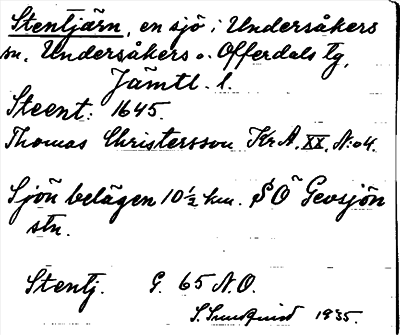 Stentjärn, en sjö i Undersåkers
sn. Undersåkers o. Offerdals tg,
Jämtl. l.
Steent: 1645.
Thomas Christersson Kr A. XX. N:o 4.
Sjön belägen 10½ km. SO Gevsjön
stn.
Stentj. G. 65 N.O.
S. Sundquist 1935.